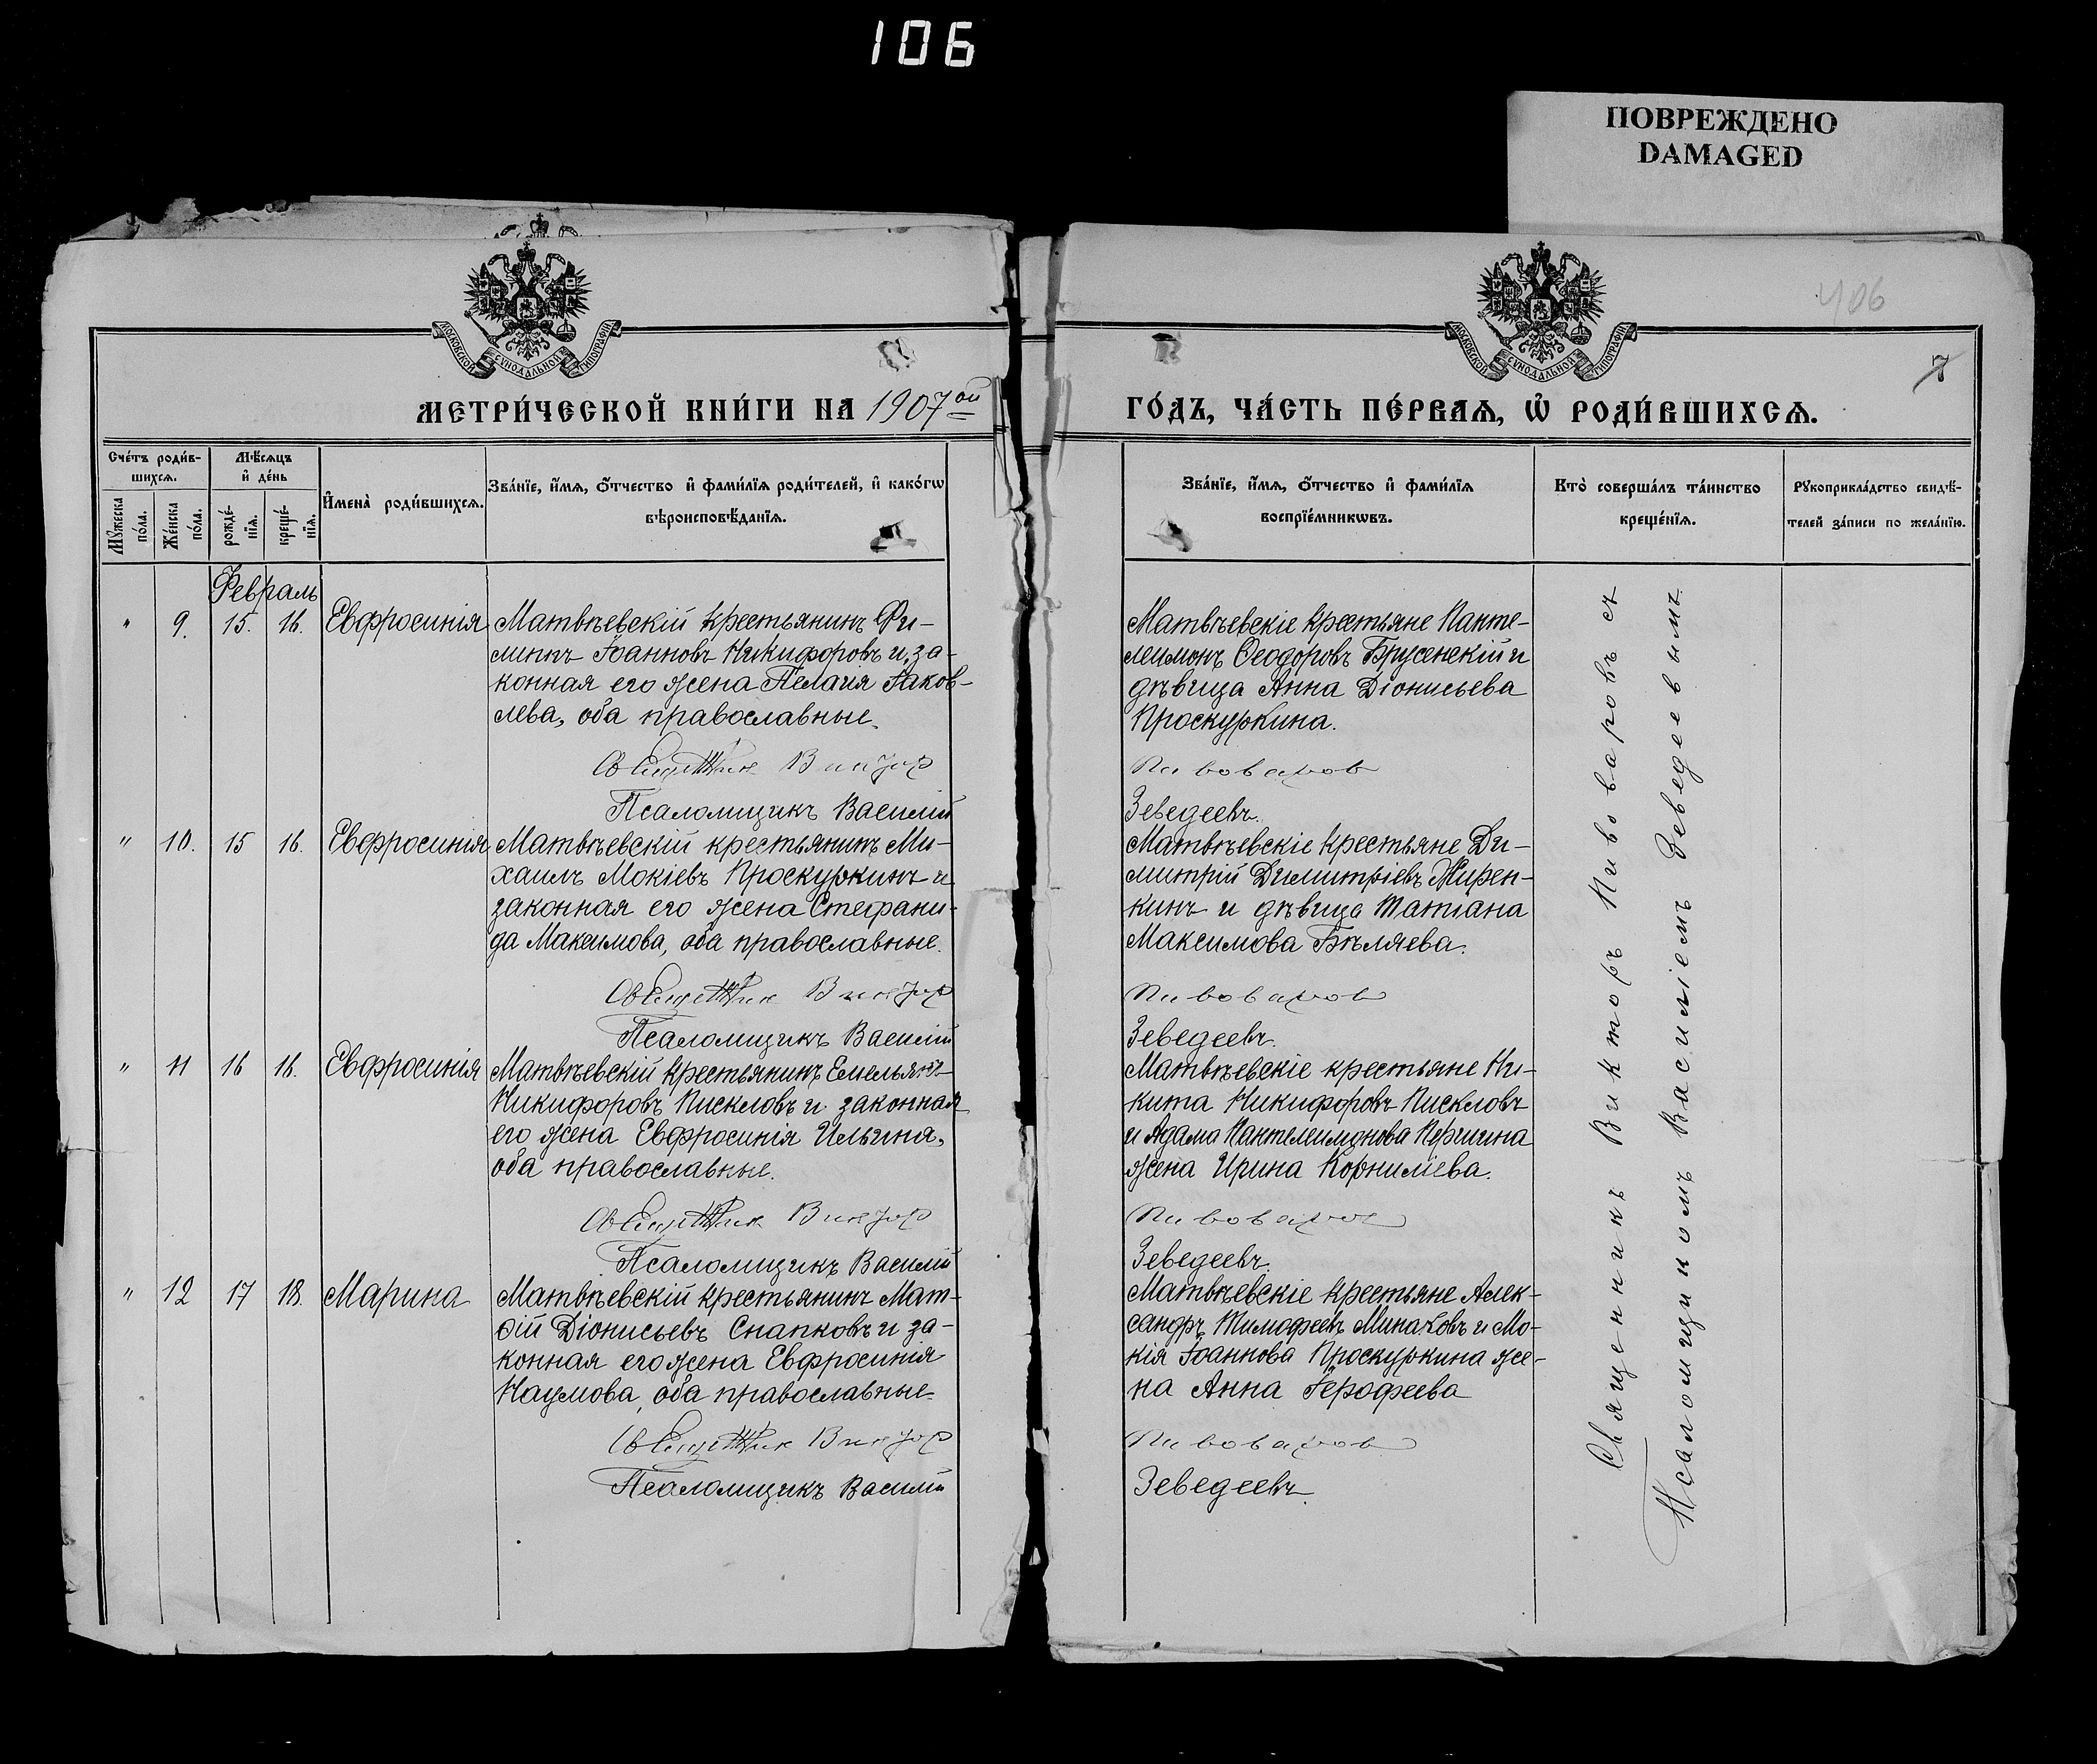 106
ПОВРЕЖДЕНО
DAMAGED
МОСКОВСКОЙ СѴНОДАЛЬНОЙ ТИПОГРАФІИ
МОСКОВСКОЙ СѴНОДАЛЬНОЙ ТИПОГРАФІИ
406
7
МЕТРИ́ЧЕСКОЙ КНИ́ГИ НА 1907ой
ГО́ДЪ, ЧА́СТЬ ПЕ́РВАѦ, Ѡ҆ РОДИ́ВШИХСѦ.
Сче́тъ роди́в-
шихсѧ.
Мꙋжеска по́ла.
Же́нска по́ла.
Мѣ́сѧцъ
и҆ де́нь
рожде́-
нїѧ.
креще́-
нїѧ.
И҆мена̀ роди́вшихсѧ.
Зва́нїе, и҆́мѧ, ѻ҆́тчество и҆ фами́лїѧ роди́телей, и҆ како́гѡ
вѣроисповѣ́данїѧ.
Зва́нїе, и҆́мѧ, ѻ҆́тчество и҆ фами́лїѧ
воспрїе́мникѡвъ.
Кто̀ соверша́лъ та́инство
креще́нїѧ.
Рꙋкоприкла́дство свидѣ́-
телей за́писи по жела́нїю.
Февраль
" 9. 15. 16. Евфросинія
Матвѣевскій крестьянинъ Фи-
липпъ Іоанновъ Никифоровъ и за-
конная его жена Пелагія Іаков-
лева, оба православные.
Священник Виктор
Псаломщикъ Василій
Матвѣевскіе крестьяне Панте-
леимонъ Ѳеодоровъ Брусенскій и
дѣвица Анна Діонисьева
Проскуркина.
Пивоваров
Зеведеевъ.
" 10. 15 16. Евфросинія
Матвѣевскій крестьянинъ Ми-
хаилъ Мокіевъ Проскуркинъ и
законная его жена Стефани-
да Максимова, оба православные.
Священник Виктор
Псаломщикъ Василій
Матвѣевскіе крестьяне Ди-
митрій Димитріевъ Жирен-
кинъ и дѣвица Татіана
Максимова Бѣляева.
Пивоваров
Зеведеевъ.
" 11 16 16. Евфросинія
Матвѣевскій крестьянинъ Емельянъ
Никифоровъ Пискловъ и законная
его жена Евфросинія Ильина,
оба православные.
Священник Виктор
Псаломщикъ Василій
Матвѣевскіе крестьяне Ни-
кита Никифоровъ Пискловъ
и Адама Пантелеимонова Першина
жена Ирина Корниліева.
Пивоваров
Зеведеевъ.
" 12 17 18. Марина
Матвѣевскій крестьянинъ Мат-
ѳій Діонисьевъ Снапковъ и за-
конная его жена Евфросинія
Наумова, оба православные
Священник Виктор
Псаломщикъ Василій
Матвѣевскіе крестьяне Алек-
сандръ Тимофеевъ Минаковъ и Мо-
кія Іоаннова Проскуркина же-
на Анна Іерофеева
Пивоваров
Зеведеевъ.
Священникъ Викторъ Пивоваровъ съ
Псаломщикомъ Василіемъ Зеведеевымъ.